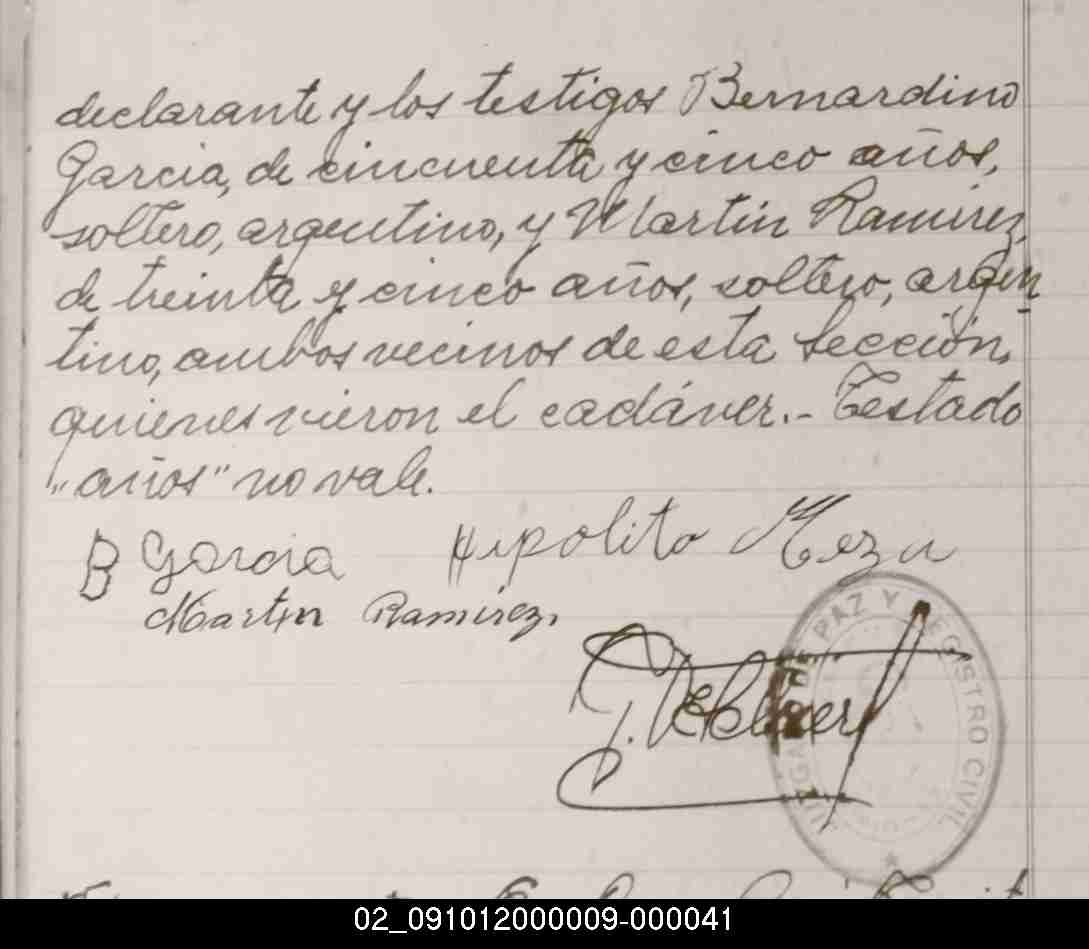 declarante y los testigos Bernardino
Garcia, de cincuenta y cinco años,
soltero, argentino, y Martín Ramirez,
de treinta y cinco años, soltero, argen
tino, ambos vecinos de esta Sección,
quienes vieron el cadáver.- Testado
"años" no vale.
B Garcia Hipolito Meza
Martin Ramirez.
JUZGADO DE PAZ Y REGISTRO CIVIL
02_091012000009-000041